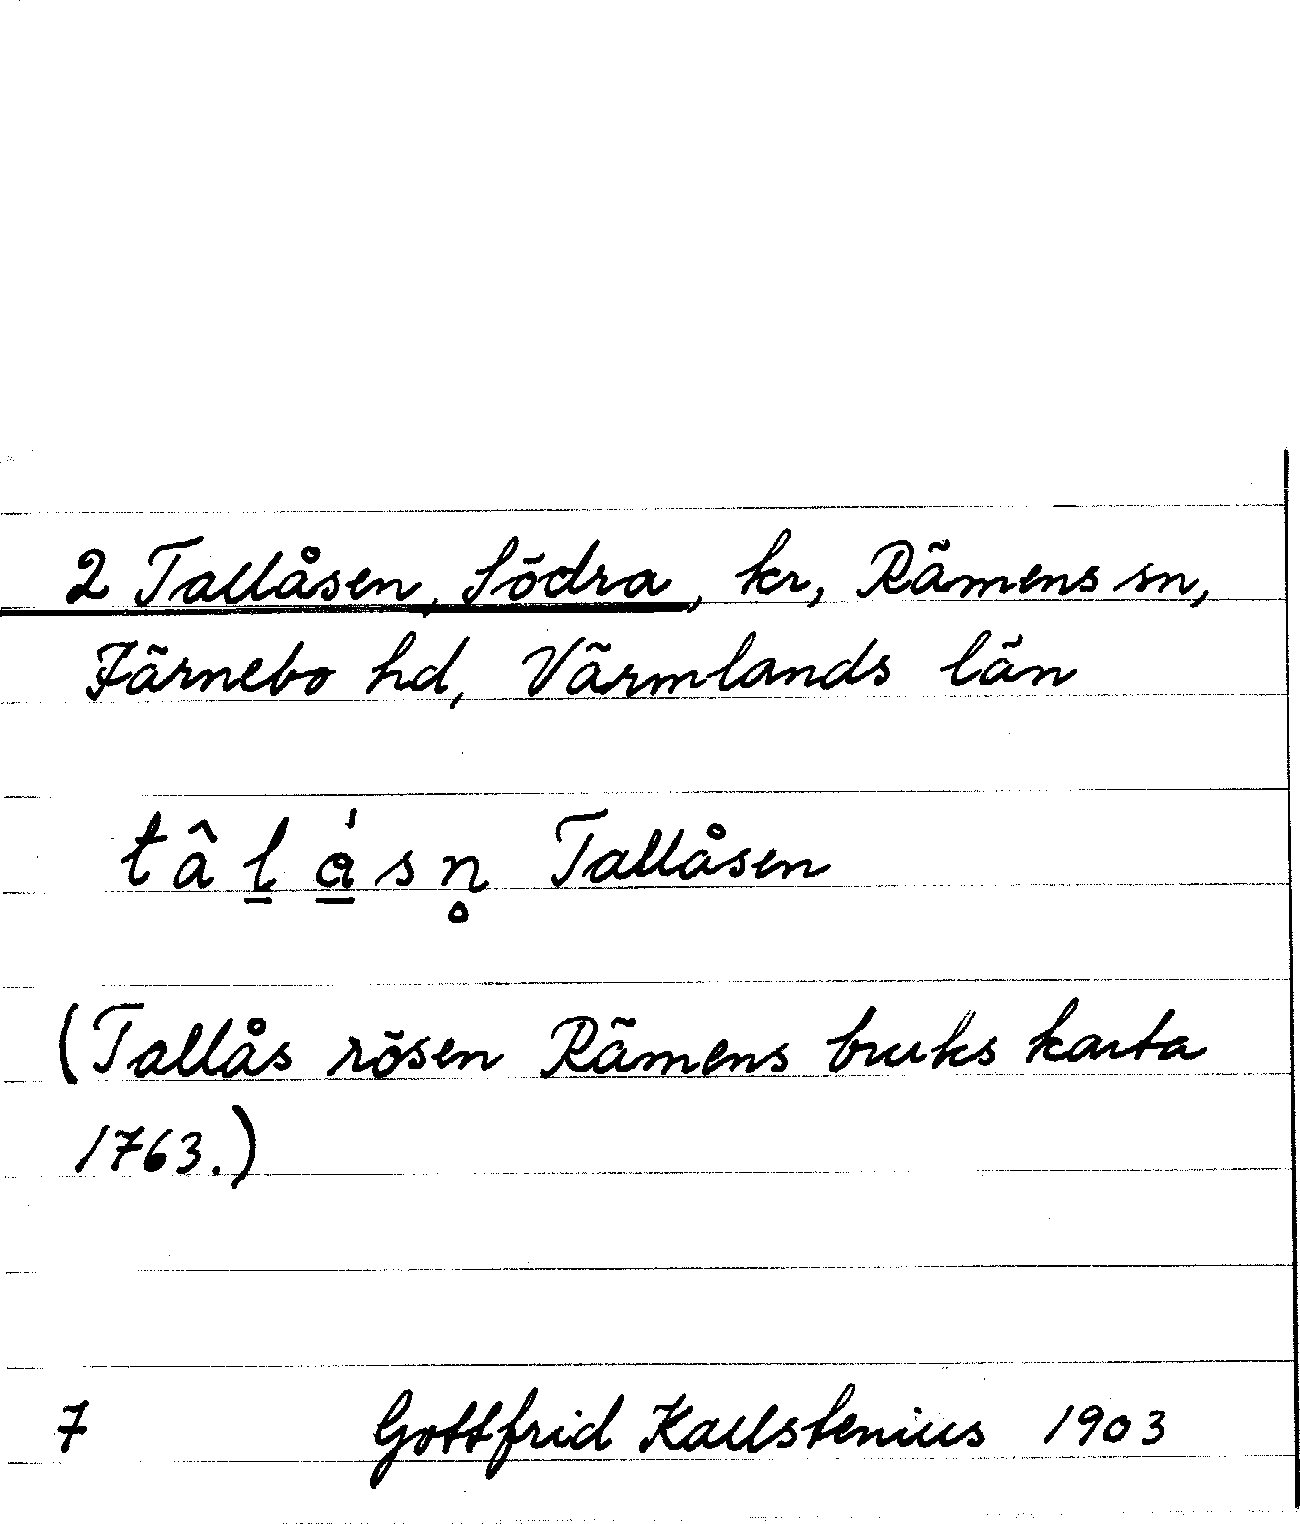 2 Tallåsen, Södra, kr, Rämens sn,
Färnebo hd, Värmlands län
t â l̲ ǻ̲ s n̥ Tallåsen
(Tallås rösen Rämens bruks karta
1763.)
7 Gottfrid Kallstenius 1903